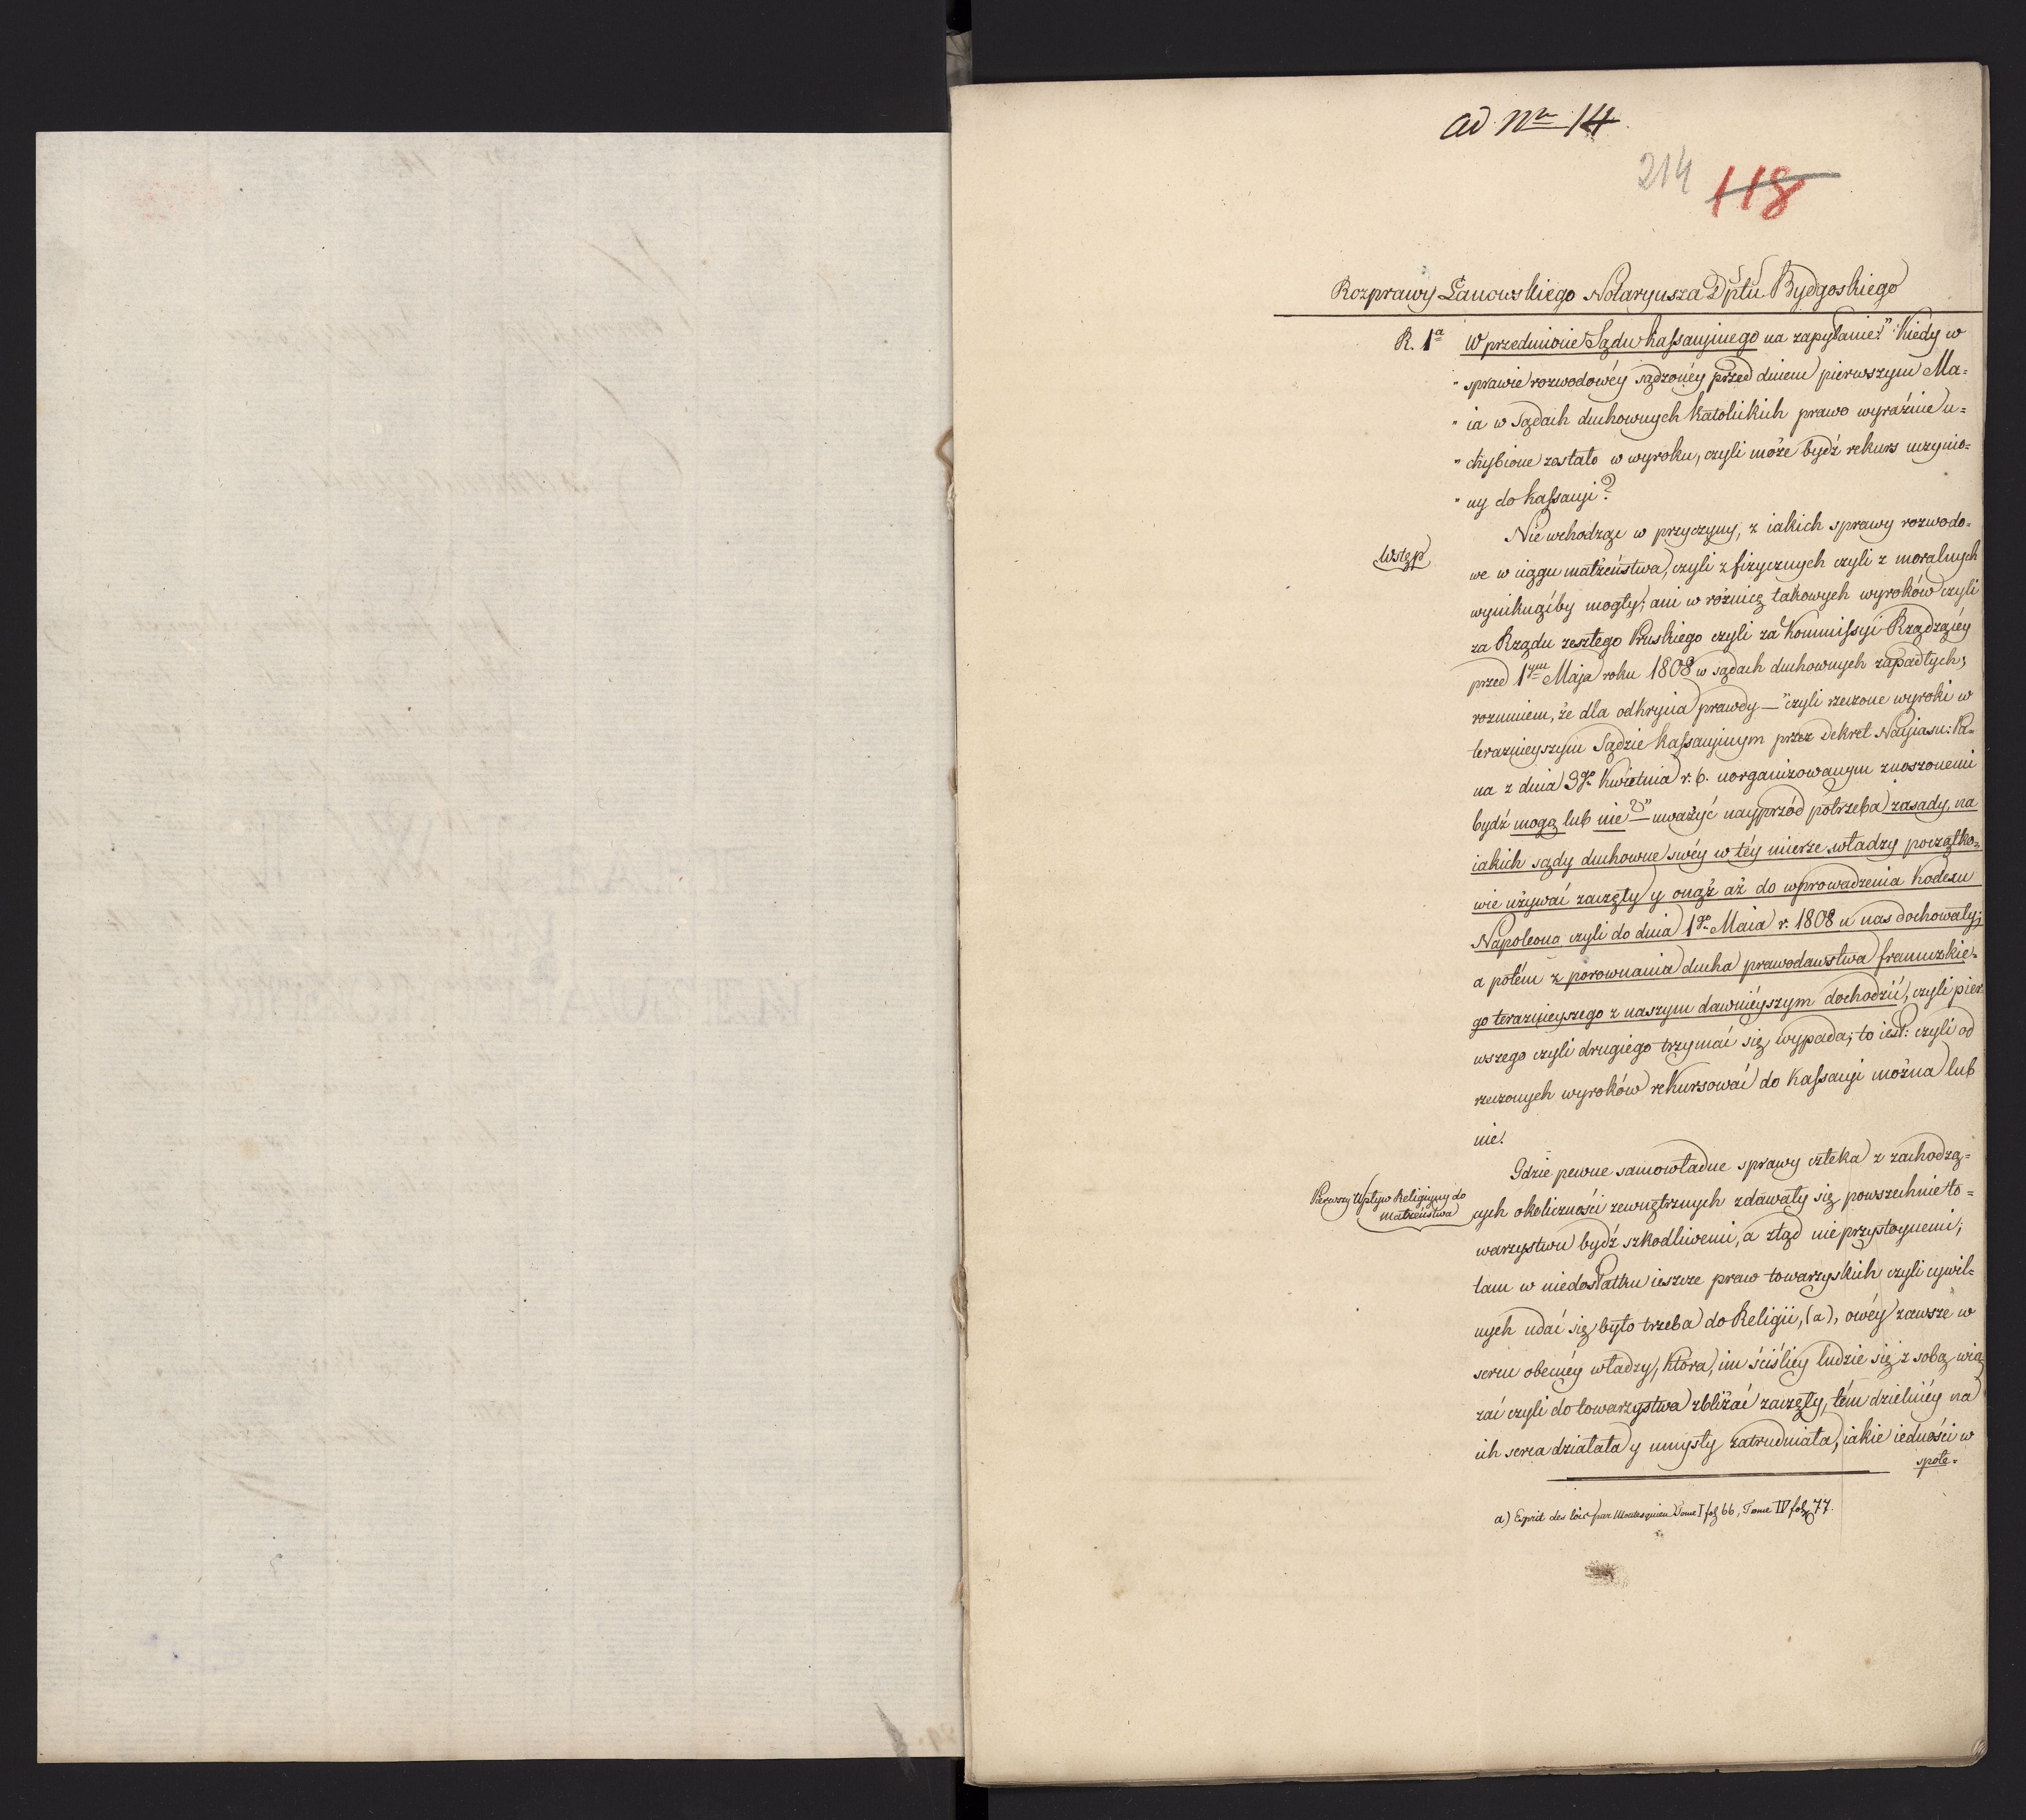 ad Nr 14
214 118
Rozprawy Łanowskiego Notaryusza Dptu Bydgoskiego
R. 1a W przedmiocie Sądu Kassacyinego na zapytanie: "Kiedy w
" sprawie rozwodowéy sądzonéy przed dniem pierwszym Ma=
" ia w Sądach duchownych Katolickich prawo wyraźnie u=
" chybione zostało w wyroku, czyli może bydź rekurs uczynio=
" ny do Kassacyi?
Wstęp
Nie wchodząc w przyczyny, z iakich sprawy rozwodo=
we w ciągu małżeństwa, czyli z fizycznych czyli z moralnych
wyniknąćby mogły; ani w różnicę takowych wyroków czyli
za Rządu zeszłego Pruskiego czyli za Kommissyi Rządzącéy
przed 1ym Maja roku 1808 w sądach duchownych zapadłych;
rozumiem, że dla odkrycia prawdy — "czyli rzeczone wyroki w
teraznieyszym Sądzie Kassacyinym przez Dekret Nayiasn: Pa=
na z dnia 3go Kwietnia r. b. uorganizowanym znoszonemi
bydź mogą lub nie?" — uważyć nayprzód potrzeba zasady, na
iakich sądy duchowne swéy w téy mierze władzy początko=
wie używać zaczęły y onąż aż do wprowadzenia Kodexu
Napoleona czyli do dnia 1go Maia r. 1808 u nas dochowały;
a potém z porownania ducha prawodawstwa francuzkie=
go teraznieyszego z naszym dawniéyszym dochodzić, czyli pier=
wszego czyli drugiego trzymać się wypada; to iest: czyli od
rzeczonych wyroków rekursować do Kassacyi można lub
nie.
Pierwszy Wpływ Religiyny do
małżeństwa
Gdzie pewne samowładne sprawy człeka z zachodzą=
cych okoliczności zewnętrznych zdawały się powszechnie to=
warzystwu bydź szkodliwemi, a ztąd nie przystoynemi;
tam w niedostatku ieszcze praw towarzyskich czyli cywil=
nych udać się było trzeba do Religii, (a), owéy zawsze w
sercu obecnéy władzy, która, im ściśliey ludzie się z sobą wią
zać czyli do towarzystwa zbliżać zaczęły, tém dzielniéy na
ich serca działała y umysły zatrudniała, iakie iedności w
społe=
a) Esprit des loix par Montesquieu Tome I fol 66, Tome IV fol 77.